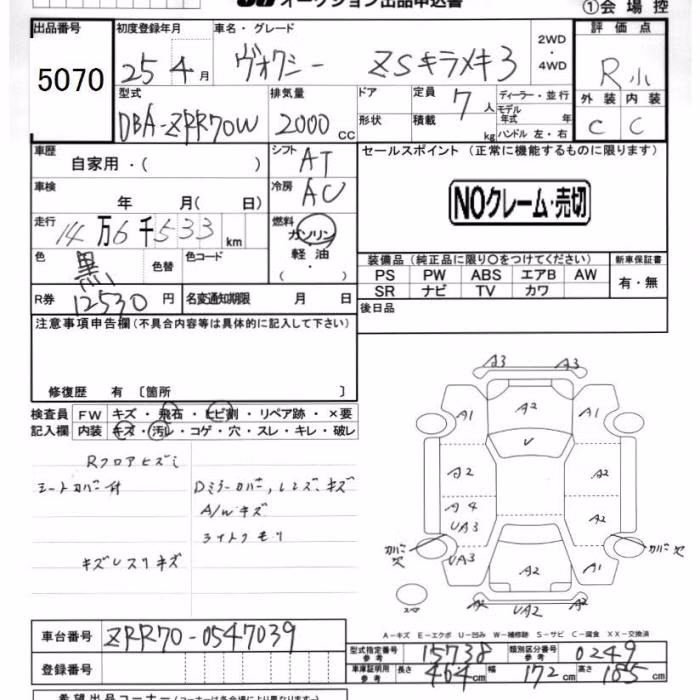 オークション出品申込書
①会場控
出品番号
5070
初度登録年月
25 4月
車名・グレード
ヴォクシー ZSキラメキ3
2WD・4WD
評価点
R小
外装 内装
C C
型式
DBA-ZRR70W
排気量
2000cc
ドア
形状
定員
7人
積載
kg
ディーラー・並行
モデル年式 年
ハンドル 左・右
車歴
自家用・( )
シフト
AT
車検
年 月( 日)
冷房
AC
走行
14万6千533km
燃料
ガソリン
軽油
( ・ )
色
黒
色替
色コード
R券 12530円
名変通知期限 月 日
セールスポイント (正常に機能するものに限ります)
NOクレーム・売切
装備品(純正品に限り〇をつけてください)
PS PW ABS エアB AW
SR ナビ TV カワ
新車保証書
有・無
後日品
注意事項申告欄(不具合内容等は具体的に記入して下さい)
修復歴 有 〔箇所 〕
検査員記入欄
FW キズ・飛石・ヒビ割・リペア跡・×要
内装 キズ・汚レ・コゲ・穴・スレ・キレ・破レ
Rフロアヒズミ
シートカバー付
Dミラーカバー,レンズ、キズ
A/Wキズ
ライトクモリ
キズU スリキズ
A3 A3
A1 A2 A1
U
A2 A2
A4
UA3 A2
カバー欠 カバー欠
UA3 A2 A1
スペア
A2 UA2 A2
A-キズ E-エクボ U-凹み W-補修跡 S-サビ C-腐食 XX-交換済
車台番号 ZRR70-0547039
登録番号
型式指定番号 参考 15738
類別区分番号 参考 0249
車庫証明用 参考 長さ 464cm 幅 172cm 高さ 185cm
希望出品コーナー